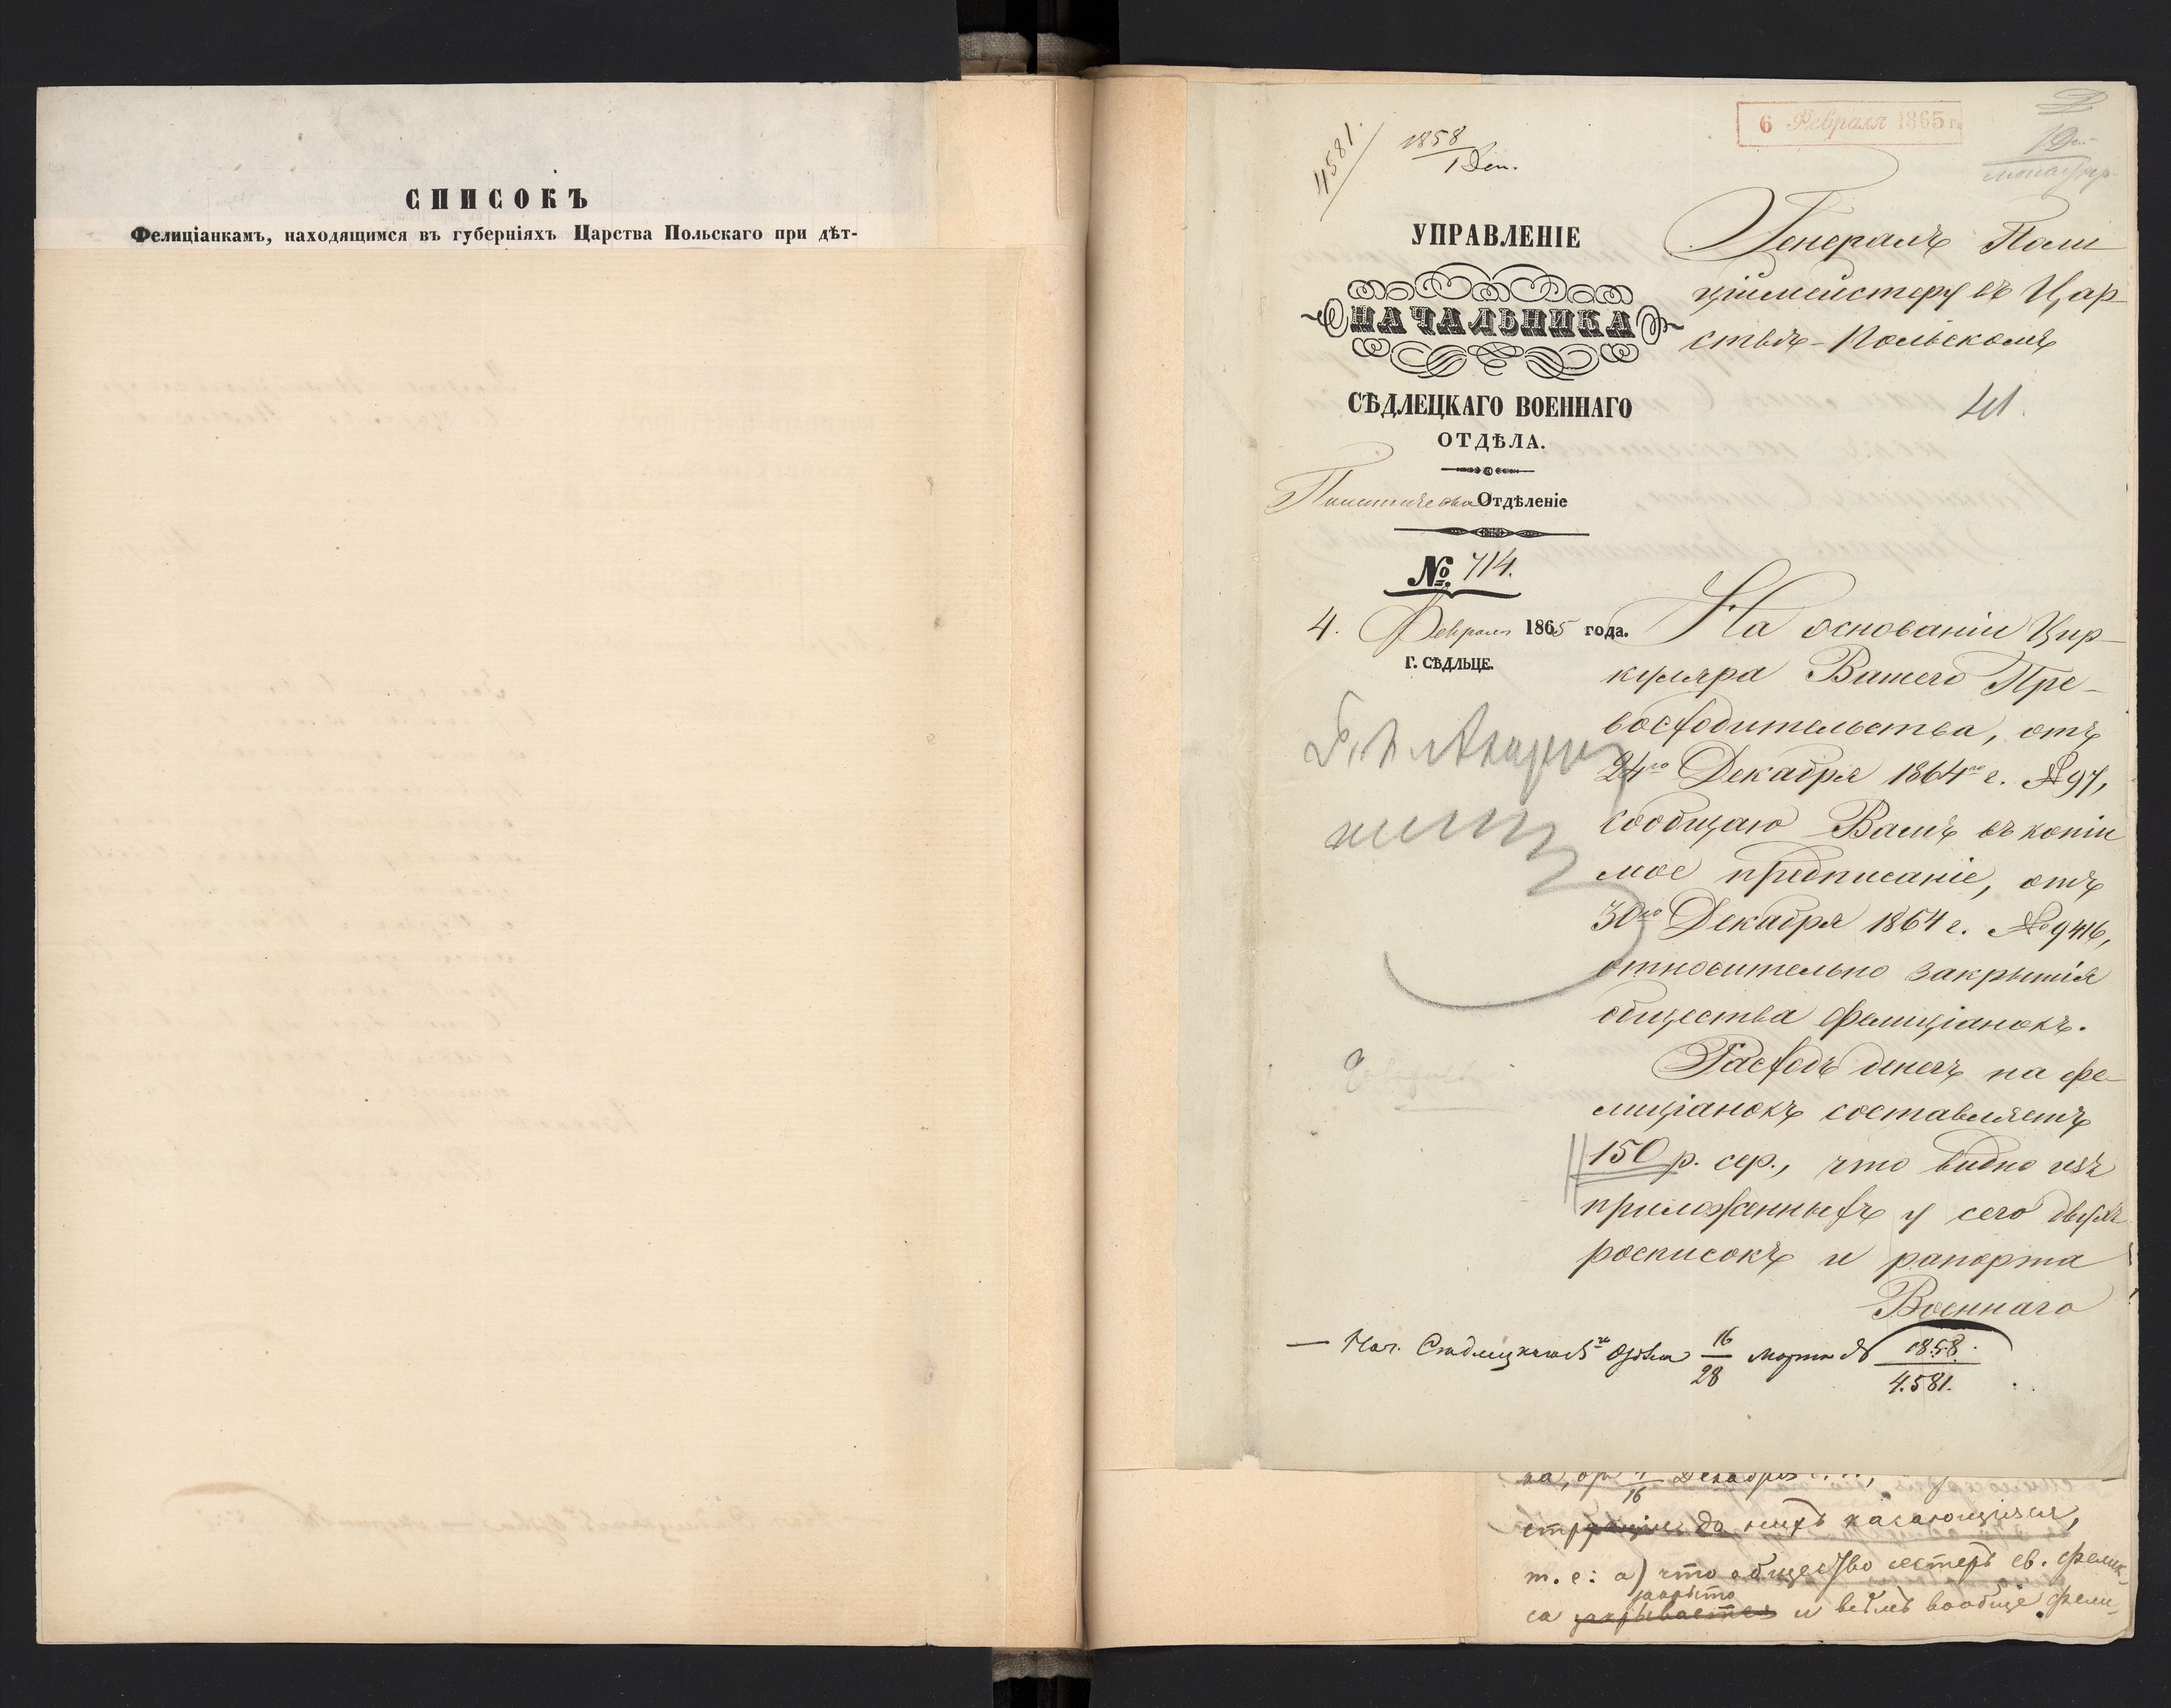 СПИСОКЪ
Фелиціанкамъ, находящимся въ губерніяхъ Царства Польскаго при дѣт-
4581.
1858
1 Деп.
6 Февраля 1865 г.
УПРАВЛЕНІЕ
НАЧАЛЬНИКА
СѢДЛЕЦКАГО ВОЕННАГО
ОТДѢЛА.
Политическое Отдѣленіе
№ 714.
4. Февраля 1865 года.
Г. СѢДЛЬЦЕ.
Генералъ Поли-
ціймейстеру въ Цар-
ствѣ-Польскомъ
41.
На основаніи Цир-
куляра Вашего Пре-
восходительства, отъ
24го Декабря 1864го г. № 97,
сообщаю Вамъ въ копіи
мое предписаніе, отъ
30го Декабря 1864 г. № 9416,
относительно закрытія
общества фелиціанокъ.
Расходъ денегъ на фе-
лиціанокъ составляетъ
150 р. сер., что видно изъ
приложенныхъ у сего двухъ
росписокъ и рапорта
Военнаго
— Нач. Сѣдлецкаго В. Отдѣла 16/28 Марта № 1858/4.581.
16 Декабря
до нихъ касающіяся,
т. е: а) что общество сестеръ св. Фелик-
закрыто
са закрывается и всѣмъ вообще фели-